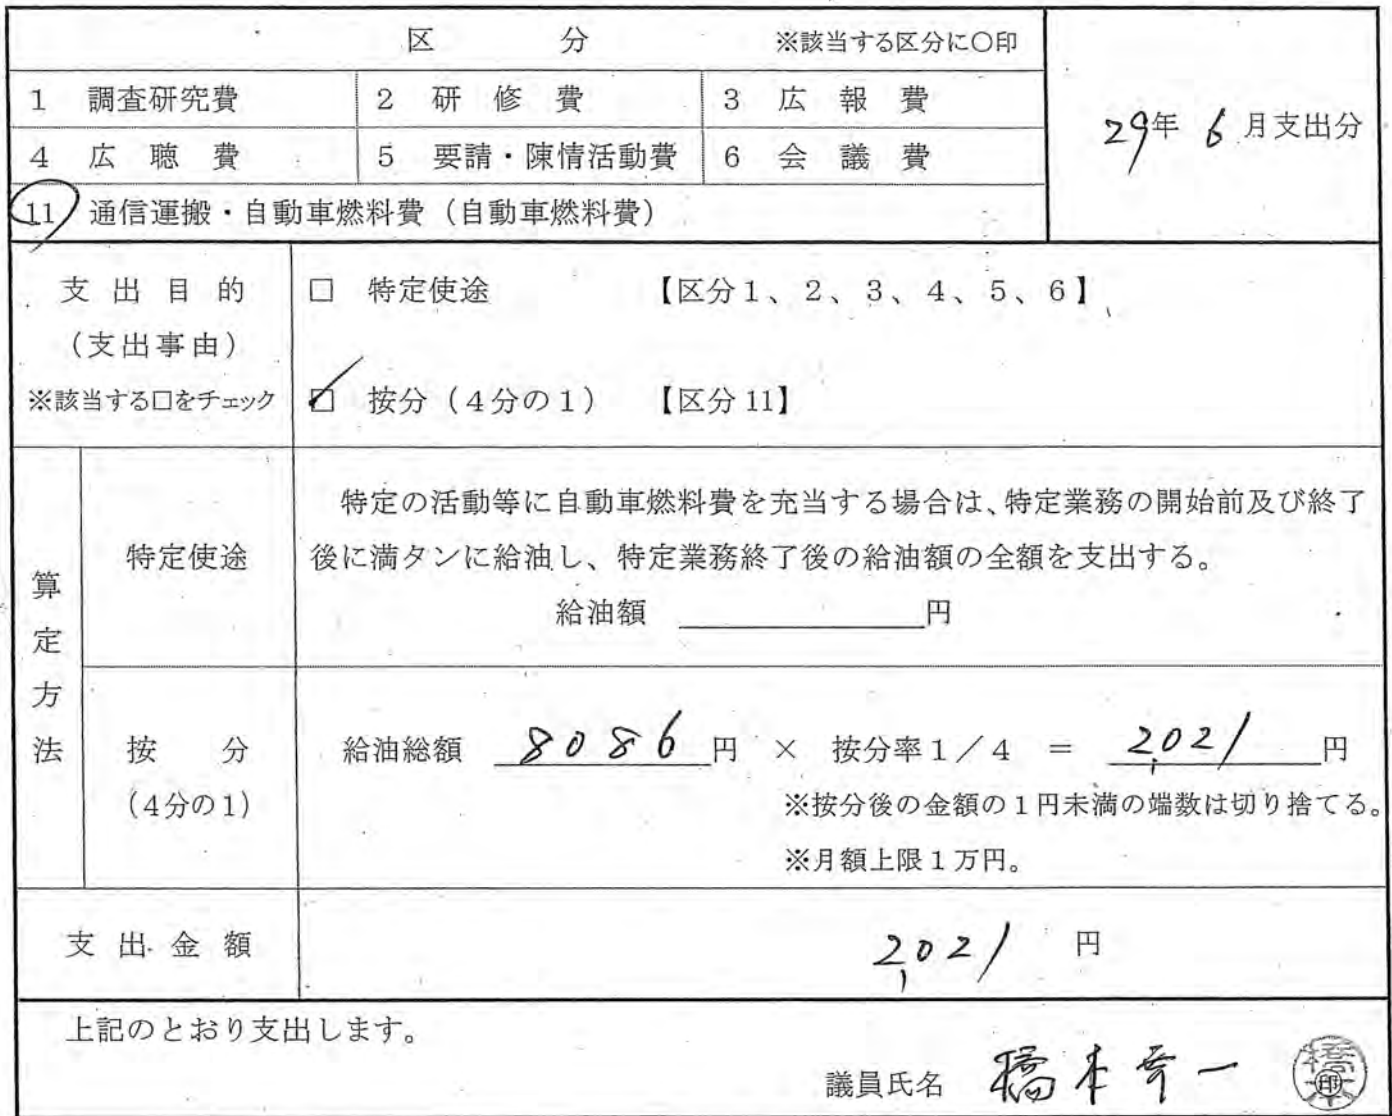 区 分 ※該当する区分に○印
1 調査研究費 2 研修費 3 広報費
29年 6月支出分
4 広聴費 5 要請・陳情活動費 6 会議費
11 通信運搬・自動車燃料費（自動車燃料費）
支出目的 □ 特定使途 【区分1、2、3、4、5、6】
（支出事由）
※該当する□をチェック ☑ 按分（4分の1） 【区分11】
算定方法
特定使途
特定の活動等に自動車燃料費を充当する場合は、特定業務の開始前及び終了
後に満タンに給油し、特定業務終了後の給油額の全額を支出する。
給油額 円
按分 給油総額 8086円 × 按分率1／4 ＝ 2,021円
（4分の1） ※按分後の金額の1円未満の端数は切り捨てる。
※月額上限1万円。
支出金額 2,021 円
上記のとおり支出します。
議員氏名 橋本幸一 印